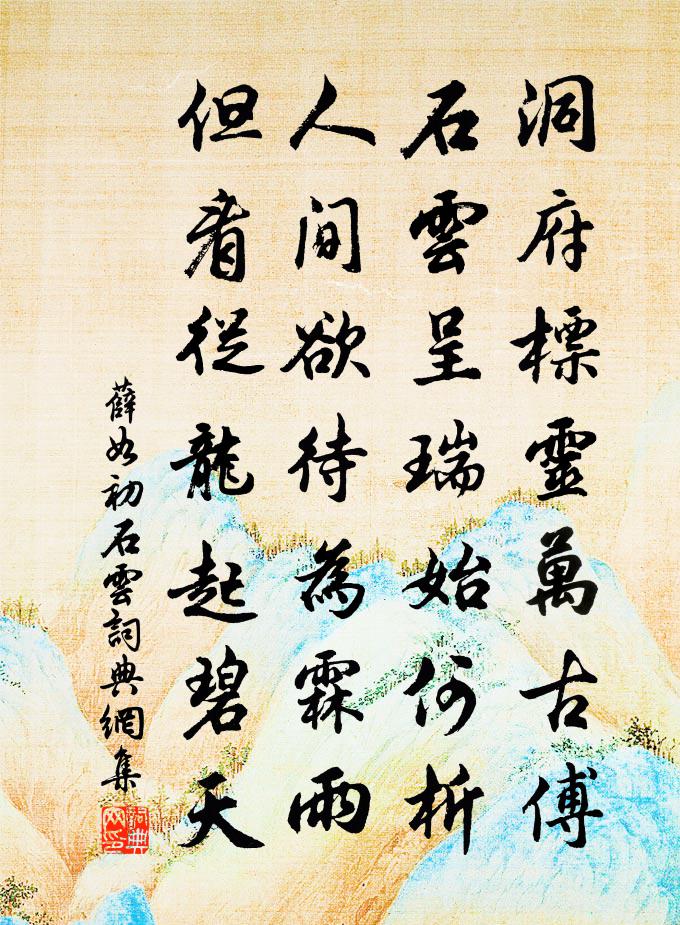 洞府標靈萬古傅
石雲呈瑞始何析
人間欲待為霖雨
但看從龍起碧天
薛如初石雲詞典網集
詞典
网印